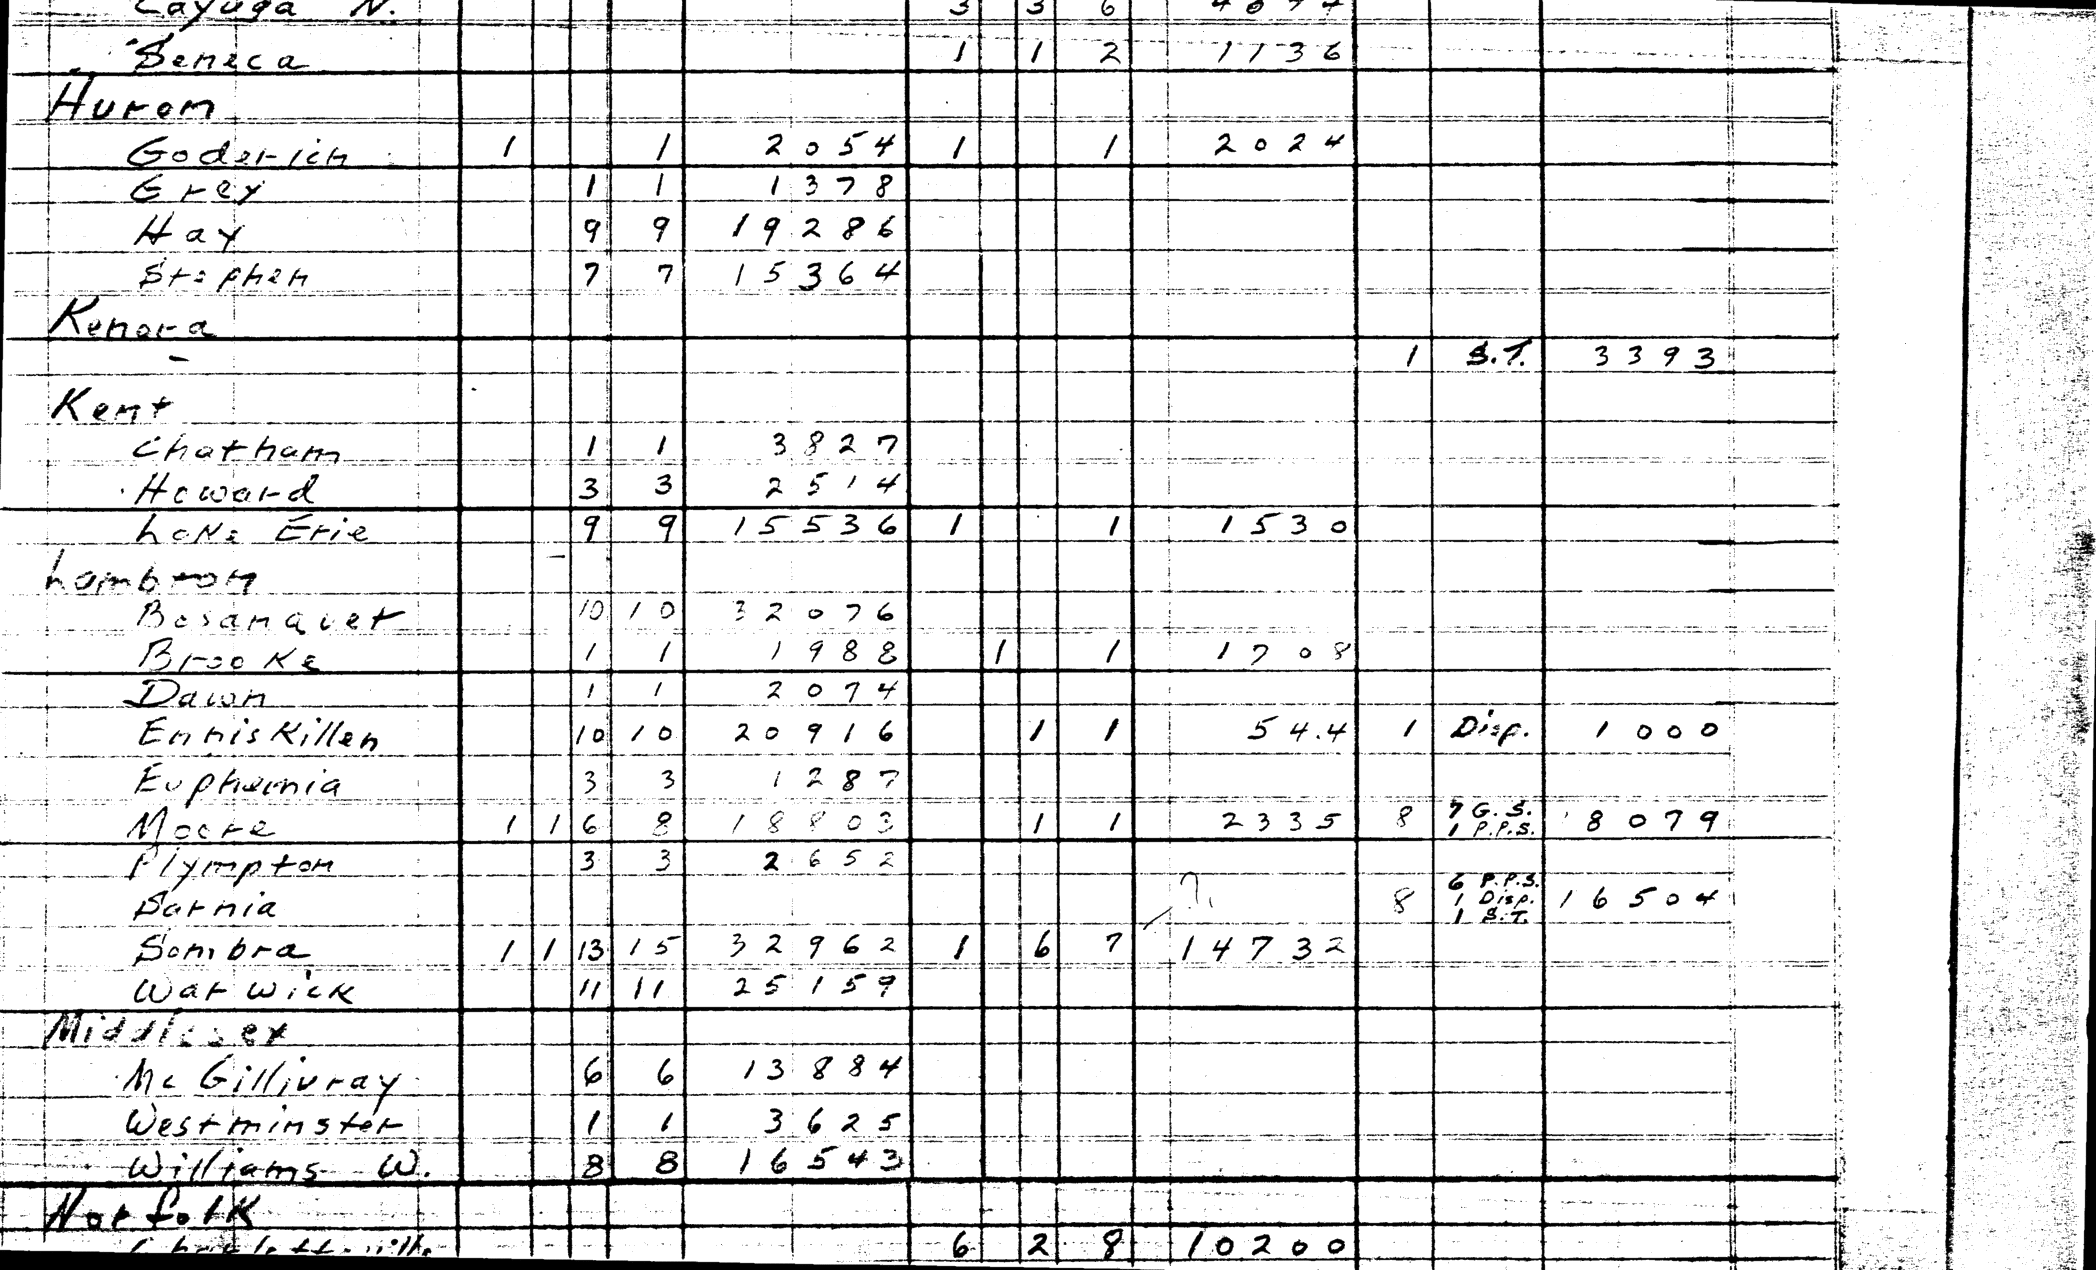 Cayuga N. 3 3 6
Seneca 1 1 2 1136
Huron
Goderich 1 1 2054 1 1 2024
Grey 1 1 1378
Hay 9 9 19286
Stephen 7 7 15364
Kenora
- 1 S.T. 3393
Kent
Chatham 1 1 3827
Howard 3 3 2514
Lake Erie 9 9 15536 1 1 1530
Lambton
Bosanquet 10 10 32076
Brooke 1 1 1988 1 1 1708
Dawn 1 1 2074
Enniskillen 10 10 20916 1 1 544 1 Disp. 1000
Euphemia 3 3 1287
Moore 1 1 6 8 18803 1 1 2335 8 7 G.S. 8079
1 P.P.S.
Plympton 3 3 2652
6 P.P.S.
Sarnia ? 8 1 Disp. 16504
1 S.T.
Sombra 1 1 13 15 32962 1 6 7 14732
Warwick 11 11 25159
Middlesex
McGillivray 6 6 13884
Westminster 1 1 3625
Williams W. 8 8 16543
Norfolk
6 2 8 10200